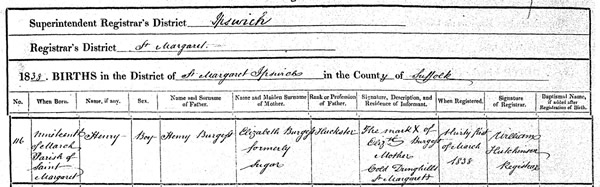 Superintendent Registrar's District Ipswich
Registrar's District St Margaret
1838. BIRTHS in the District of St Margaret Ipswich in the County of Suffolk
No. When Born. Name, if any. Sex. Name and Surname of Father. Name and Maiden Surname of Mother. Rank or Profession of Father. Signature, Description, and Residence of Informant. When Registered. Signature of Registrar. Baptismal Name, if added after Registration of Birth.
116
Nineteenth
of March
Parish of
Saint
Margaret
Henry
Boy
Henry Burgess
Elizabeth Burgess
formerly
Sugar
Huckster
The mark X of
Elizth Burgess
Mother
Cold Dunghills
St Margarets
Thirty first
of March
1838
William
Hutchinson
Registrar